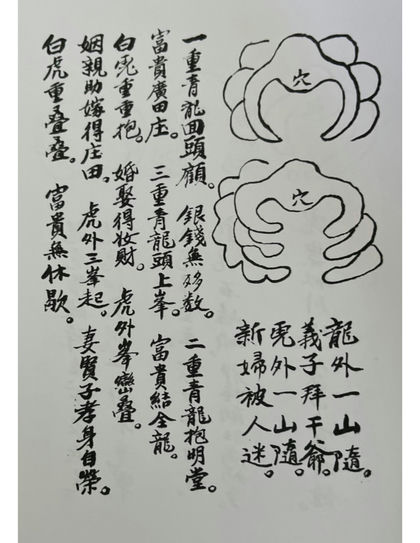 穴
穴
龍外一山隨。
義子拜干爺。
虎外一山隨。
新婦被人迷。
一重青龍回頭顧。銀錢無移数。二重青龍抱明堂。
富貴廣田庄。三重青龍頭上峯。富貴結全龍。
白虎重重抱。婚娶得妝財。虎外峯巒叠。
姻親助嫁得庄田。虎外三峯起。妻賢子孝身自榮。
白虎重叠叠。富貴無休歇。